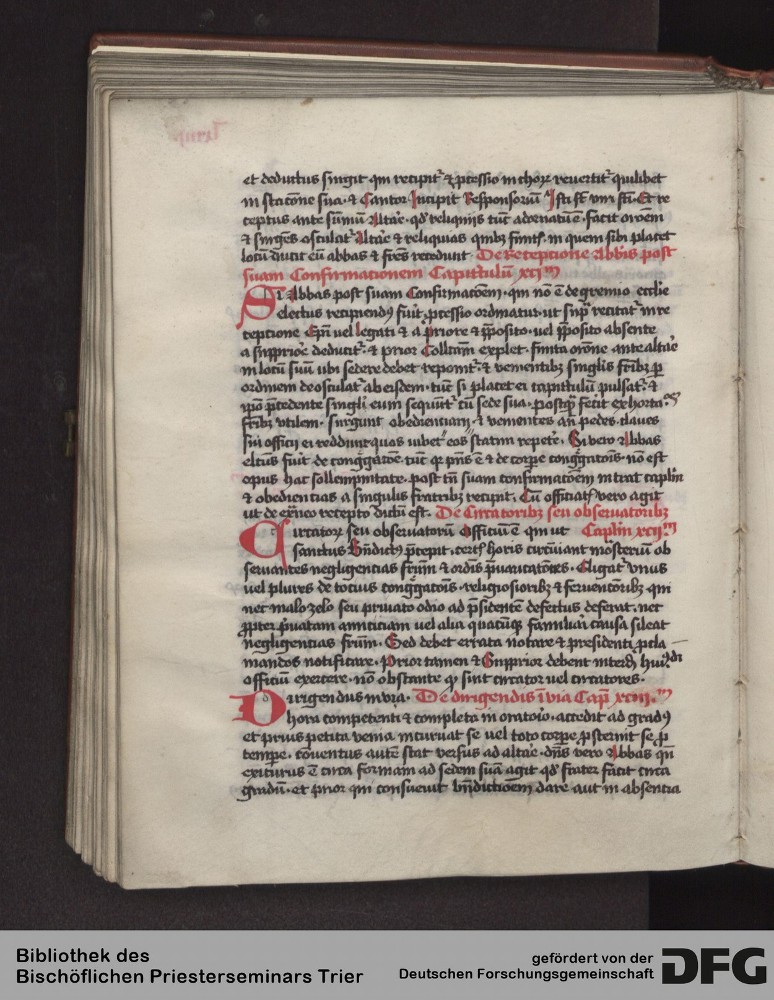 et deductus singit qm recipit᷑ & ꝓcessio in choꝝ reuertit᷑ quilibet
in stacōne sua · & Cantor Incipit Responsoriū Isti st viri sti · Et re
ceptus ante sūmū Altar̄e · qd reliquijs tūc adornatū ē · facit orōem
& surgēs osculat᷑ Altar̄e & reliquias quibꝫ finit in quem sibi placet
locū ducit eū abbas & fr̄es recedunt · De Receptione Abbīs post
suam Confirmationem Capittulū xci m̄
Si Abbas post suam Confirmacōem · qm nō ē de gremio ecclīe
electus recipiendꝰ fuit ꝓcessio ordinatur · ut supͣ recitat᷑ in re
ceptione Epī uel legati & a p̄riore & p̄posito · uel p̄posito absente
a supp̄rior̄e deducit᷑ · & prior Collcām explet · finita orōne ante altar̄e
in locū suū ubi sedere debet reponit᷑ · & venientibꝫ singlīs fr̄ibꝫ ꝑ
ordinem deosculat᷑ ab eisdem · tūc si placet ei capittulū pulsat᷑ · &
ip̄o p̄cedente singli eum sequūt᷑ cū sede sua · postqͣ fecit exhorta oem
fr̄ibꝫ vtilem · surgunt obedienciarij · & venientes an̄ pedes · claues
sui officij ei reddunt quas iubet eos statim repete᷑ · Si vero Abbas
elctus fuit de congͣgacōe · tūc qꝫ pn̄s ē & de corꝑe congͣgacōis · nō est
opus hac sollempnitate · post tn̄ suam confirmacōem intrat caplm̄
& obediencias a singulis fratribꝫ recipit · Cū officiatꝭ vero agit
ut de ext᷑neo recepto dictū est · De Circatoribꝫ seu obseruatoribꝫ
Circatorꝝ seu obseruatorū Officiū ē qm ut Caplm̄ xcii m̄
sanctus Bn̄dictꝰ p̄cepit · certꝭ horis circuīant mōsteriū ob
seruantes negligencias frm̄ & ordīs p̄uaricacōes · Eligat᷑ vnus
uel plures de tocius congͣgacōis · religiosioribꝫ & feruencōribꝫ qui
nec malo zelo seu priuato odio ad p̄sidentē defectus deferat · nec
ꝓpter pͥuatam amiciciam uel alia quacūqꝫ familiari causa sileat
negligencias frm̄ · Sed debet errata notare & presidenti ꝓcla
mandos notificare · Prior tamen & Supprior debent interdū huiꝰdi
officiū exercere · nō obstante qꝫ sint circator uel circatores ·
Dirigendus in via · De dirigendis ī via Cap̄ xciii · m̄
hora competenti & completa in oratoīo · accedit ad gradꝰ
et prius petita venia incuruat se uel toto corꝑe ꝓsternit se ꝓ
tempe · conuentus autē stat versus ad altar̄e · dn̄s vero Abbas qn̄
exiturus ē circa formam ad sedem suā agit qd frater facit circa
gradū · et prior qui consueuit bn̄dictiōem dare aut in absentia
Bibliothek des
Bischöflichen Priesterseminars Trier
gefördert von der
Deutschen Forschungsgemeinschaft DFG